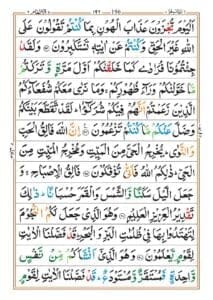 اَلْيَوْمَ تُجْزَوْنَ عَذَابَ الْهُوْنِ بِمَا كُنْتُمْ تَقُوْلُوْنَ عَلَى
اللّٰهِ غَيْرَ الْحَقِّ وَكُنْتُمْ عَنْ اٰيٰتِهٖ تَسْتَكْبِرُوْنَ وَلَقَدْ
جِئْتُمُوْنَا فُرَادٰى كَمَا خَلَقْنٰكُمْ اَوَّلَ مَرَّةٍ وَّتَرَكْتُمْ
مَّا خَوَّلْنٰكُمْ وَرَآءَ ظُهُوْرِكُمْ وَمَا نَرٰى مَعَكُمْ
شُفَعَآءَكُمُ الَّذِيْنَ زَعَمْتُمْ اَنَّهُمْ فِيْكُمْ شُرَكٰٓؤُا لَقَدْ تَّقَطَّعَ بَيْنَكُمْ
وَضَلَّ عَنْكُمْ مَّا كُنْتُمْ تَزْعُمُوْنَ اِنَّ اللّٰهَ فَالِقُ الْحَبِّ
وَالنَّوٰى يُخْرِجُ الْحَيَّ مِنَ الْمَيِّتِ وَمُخْرِجُ الْمَيِّتِ مِنَ
الْحَيِّ ذٰلِكُمُ اللّٰهُ فَاَنّٰى تُؤْفَكُوْنَ فَالِقُ الْاِصْبَاحِ وَ
جَعَلَ الَّيْلَ سَكَنًا وَّالشَّمْسَ وَالْقَمَرَ حُسْبَانًا ذٰلِكَ
تَقْدِيْرُ الْعَزِيْزِ الْعَلِيْمِ وَهُوَ الَّذِيْ جَعَلَ لَكُمُ النُّجُوْمَ
لِتَهْتَدُوْا بِهَا فِيْ ظُلُمٰتِ الْبَرِّ وَالْبَحْرِ قَدْ فَصَّلْنَا الْاٰيٰتِ
لِقَوْمٍ يَّعْلَمُوْنَ وَهُوَ الَّذِيْٓ اَنْشَاَكُمْ مِّنْ نَّفْسٍ
وَّاحِدَةٍ فَمُسْتَقَرٌّ وَّمُسْتَوْدَعٌ قَدْ فَصَّلْنَا الْاٰيٰتِ لِقَوْمٍ